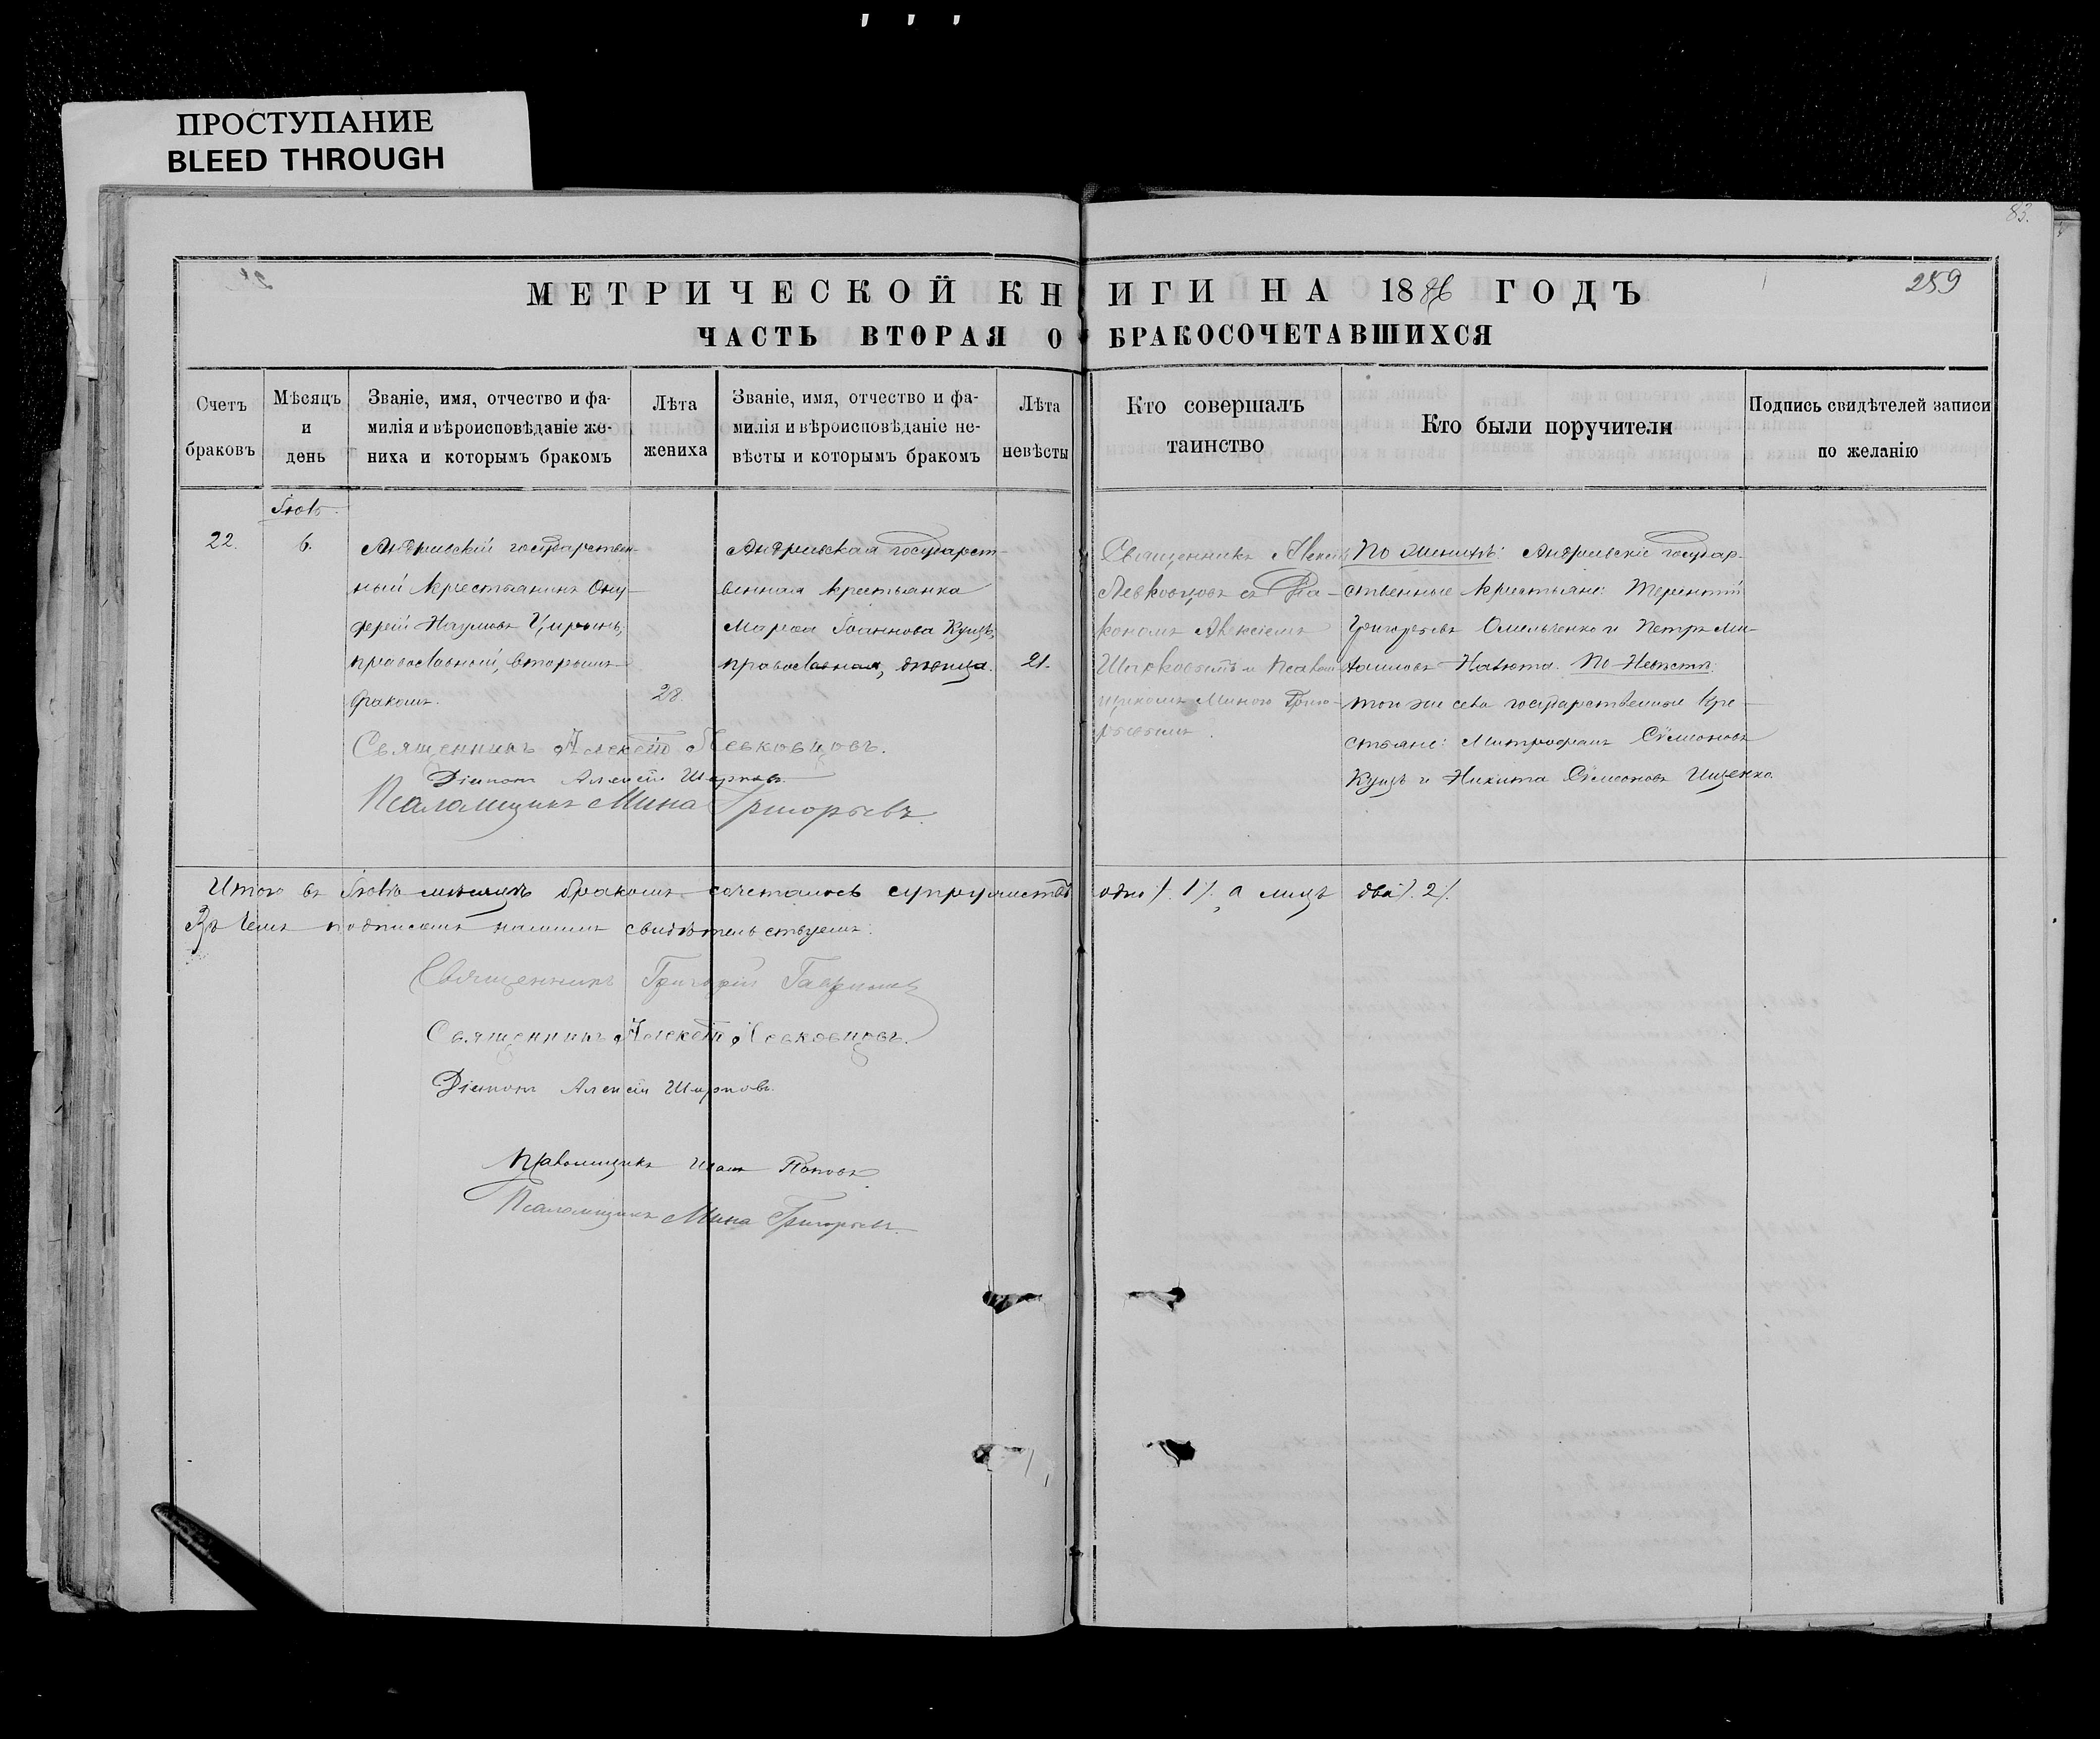 ПРОСТУПАНИЕ
BLEED THROUGH
83.
259
МЕТРИЧЕСКОЙ КНИГИ НА 1886 ГОДЪ
ЧАСТЬ ВТОРАЯ О БРАКОСОЧЕТАВШИХСЯ
Счетъ браковъ
Мѣсяцъ и день
Званіе, имя, отчество и фа-
милія и вѣроисповѣданіе же-
ниха и которымъ бракомъ
Лѣта жениха
Званіе, имя, отчество и фа-
милія и вѣроисповѣданіе не-
вѣсты и которымъ бракомъ
Лѣта невѣсты
Кто совершалъ таинство
Кто были поручители
Подпись свидѣтелей записи по желанію
22.
6.
Андреевскій государствен-
ный крестьянинъ Ону-
фрій Наумовъ
православный, вторымъ
бракомъ.
28.
Андреевская государст-
венная крестьянка
Марѳа Іоаннова Куцъ,
православная, дѣвица.
21.
Священникъ Алексій
Левковцовъ съ Діа-
кономъ Алексіемъ
Шарковымъ и Псалом-
щикомъ Миною Григо-
рьевымъ.
По женихѣ: Андреевскіе государ-
ственные крестьяне: Терентій
Григорьевъ Омельченко и Петръ Ми-
хаиловъ. По Невѣстѣ:
того же села государственные кре-
стьяне: Митрофанъ Сѵмеоновъ
Куцъ и Никита Сѵмеоновъ Ищенко.
Священникъ Алексѣй Левковцовъ.
Діаконъ Алексій Шарковъ.
Псаломщикъ Мина Григорьевъ.
Итого въ мѣсяцѣ бракомъ сочеталось супружествъ одно /.1/. а лицъ два /.2/.
Въ чемъ подписомъ нашимъ свидѣтельствуемъ:
Священникъ Григорій Гавриловъ
Священникъ Алексѣй Левковцовъ.
Діаконъ Алексій Шарковъ.
Псаломщикъ Иванъ Поповъ.
Псаломщикъ Мина Григорьевъ.